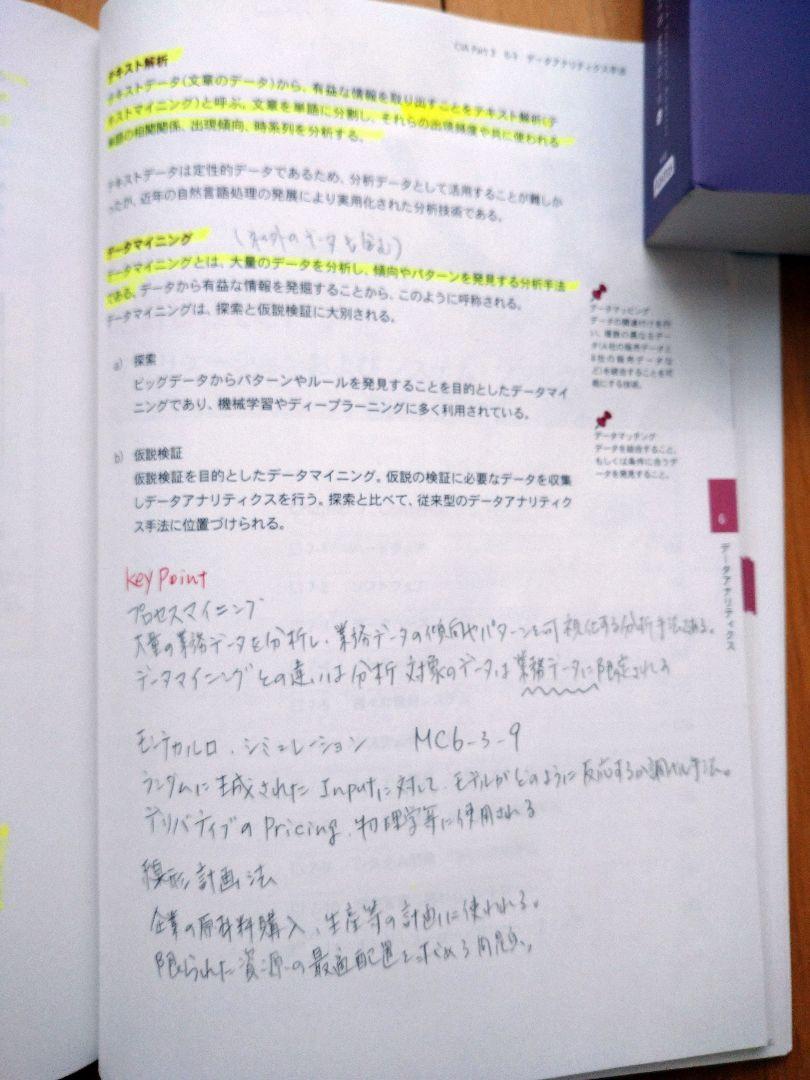 CIA Part 3 6-3 データアナリティクス手法
テキスト解析
テキストデータ(文章のデータ)から、有益な情報を取り出すことをテキスト解析(テ
キストマイニング)と呼ぶ。文章を単語に分割し、それらの出現頻度や共に使われる
単語の相関関係、出現傾向、時系列を分析する。
テキストデータは定性的データであるため、分析データとして活用することが難しか
ったが、近年の自然言語処理の発展により実用化された分析技術である。
データマイニング
データ も含む)
データマイニングとは、大量のデータを分析し、傾向やパターンを発見する分析手法
である。データから有益な情報を発掘することから、このように呼称される。
データマイニングは、探索と仮説検証に大別される。
a) 探索
ビッグデータからパターンやルールを発見することを目的としたデータマイ
ニングであり、機械学習やディープラーニングに多く利用されている。
b) 仮説検証
仮説検証を目的としたデータマイニング。仮説の検証に必要なデータを収集
しデータアナリティクスを行う。探索と比べて、従来型のデータアナリティク
ス手法に位置づけられる。
データマッピング
データの関連付けを行
い、複数の異なるデー
タ(A社の販売データと
B社の販売データな
ど)を統合することを可
能にする技術。
データマッチング
データを統合すること、
もしくは条件に合うデ
ータを発見すること。
6
データアナリティクス
key Point
プロセスマイニング
大量の業務データを分析し、業務データの傾向やパターンを可視化する分析手法である。
データマイニングとの違いは分析対象のデータは業務データに限定される
モンテカルロ・シミュレーション MC6-3-9
ランダムに生成されたInputに対して、モデルがどのように反応するか調べる手法。
デリバティブのPricing、物理学等に使用される
線形計画法
企業の原材料購入、生産等の計画に使われる。
限られた資源の最適配置を求める問題。